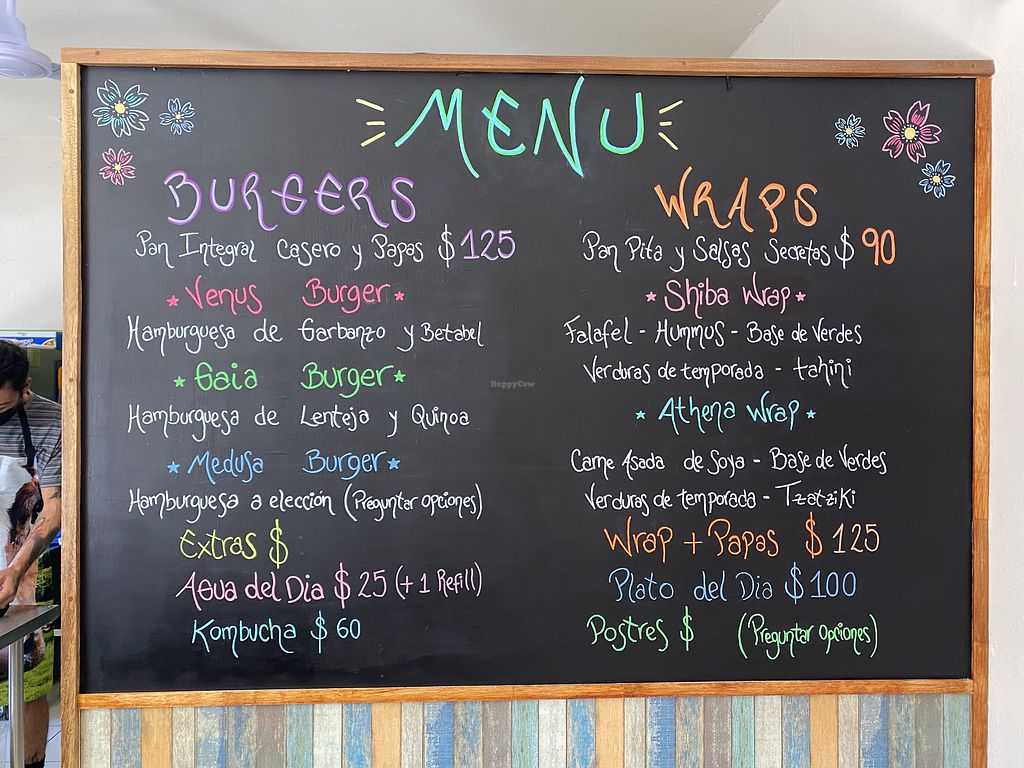 MENU
BURGERS
Pan Integral Casero y Papas $125
Venus Burger
Hamburguesa de Garbanzo y Betabel
Gaia Burger
Hamburguesa de Lenteja y Quinoa
Medusa Burger
Hamburguesa a elección (Preguntar opciones)
Extras $
Agua del Dia $25 (+1 Refill)
Kombucha $60
WRAPS
Pan Pita y Salsas Secretas $90
Shiba Wrap
Falafel - Hummus - Base de Verdes
Verduras de temporada - tahini
Athena Wrap
Carne Asada de Soya - Base de Verdes
Verduras de temporada - Tzatziki
Wrap + Papas $125
Plato del Dia $100
Postres $ (Preguntar opciones)
HappyCow